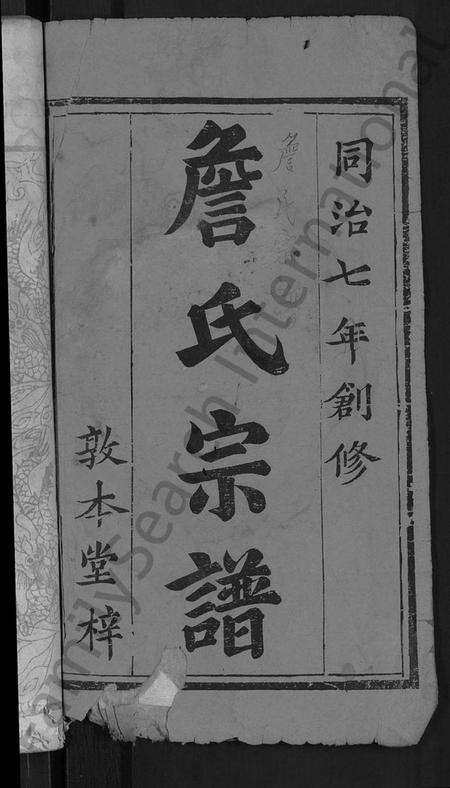 同治七年創修
詹氏宗譜
敦本堂梓
詹氏
FamilySearch International